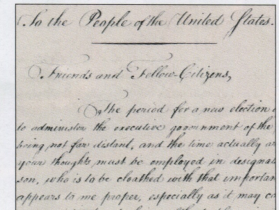 To the People of the United States.
Friends and Fellow-Citizens,
The period for a new election
to administer the executive government of the
being not far distant, and the time actually ar
your thoughts must be employed in designat
son, who is to be cloathed with that importan
appears to me proper, especially as it may